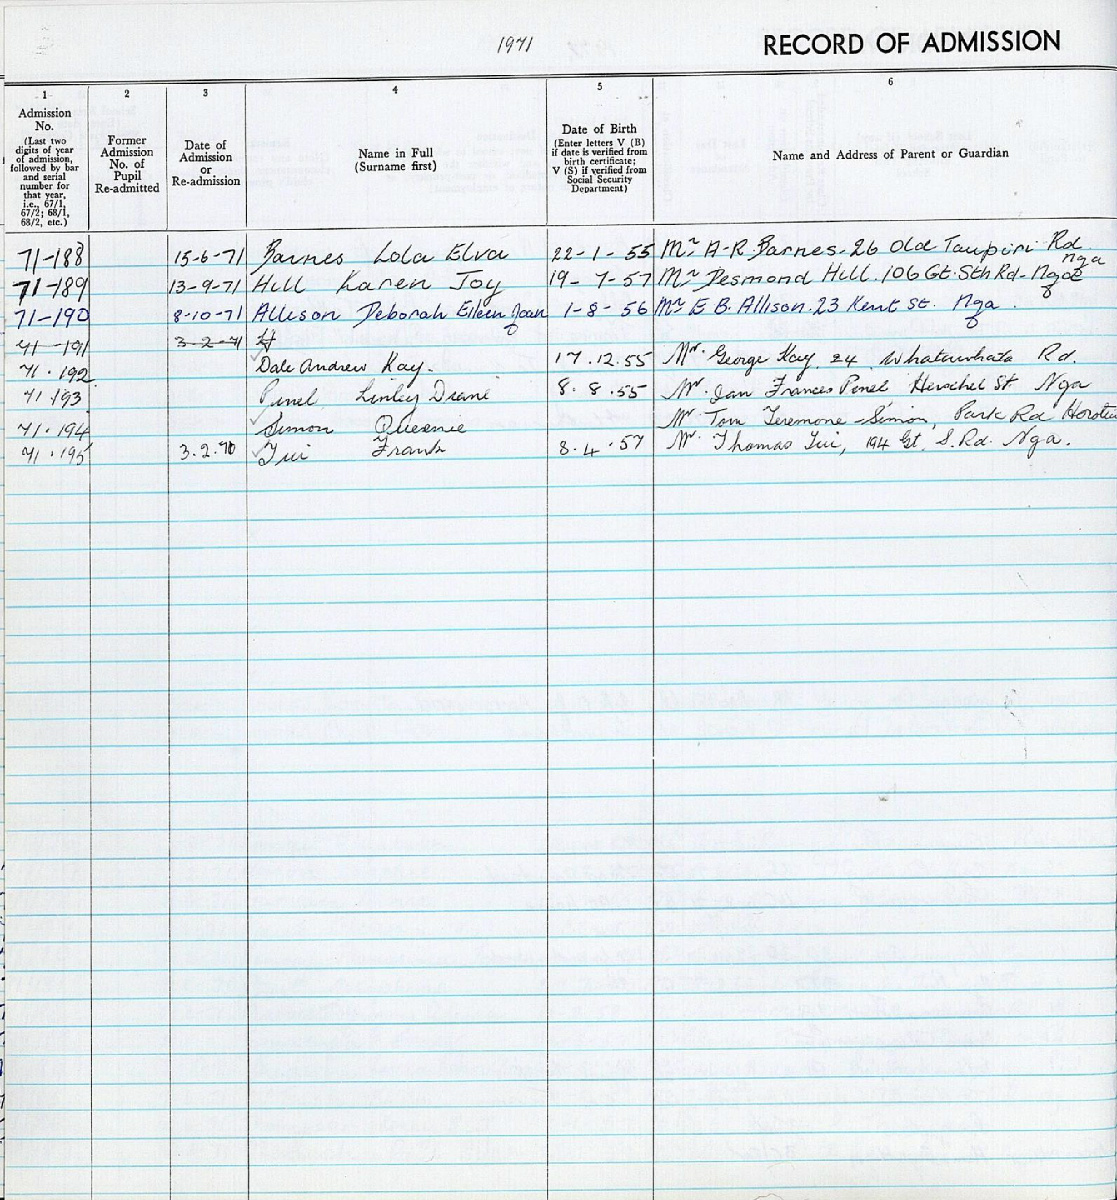 1971 RECORD OF ADMISSION
1 2 3 4 5 6
Admission
No.
(Last two
digits of year
of admission,
followed by bar
and serial
number for
that year,
i.e., 67/1,
67/2; 68/1,
68/2, etc.)
Former
Admission
No. of
Pupil
Re-admitted
Date of
Admission
or
Re-admission
Name in Full
(Surname first)
Date of Birth
(Enter letters V (B)
if date is verified from
birth certificate;
V (S) if verified from
Social Security
Department)
Name and Address of Parent or Guardian
71-188 15-6-71 Barnes Lola Elva 22-1-55 Mr A-R. Barnes. 26 Old Taupiri Rd. Nga
71-189 13-9-71 Hill Karen Joy 19-7-57 Mr Desmond Hill. 106 Gt. Sth Rd-
71-190 8-10-71 Allison Deborah Eileen Joan 1-8-56 Mr E B. Allison. 23 Kent St. Nga.
71-191 3-2-71 H
71.192 Dale Andrew Kay. 17.12.55 Mr. George Kay, 24 Whatawhata Rd.
71.193 Pinel Linley Diane 8.8.55 Mr. Ian Frances Pinel Herschel St Nga
71.194 Simon Queenie Mr. Tom Teremone Simon, Park Rd
71.195 3.2.70 Tui Frank 8.4.57 Mr. Thomas Tui, 194 Gt. S. Rd. Nga.